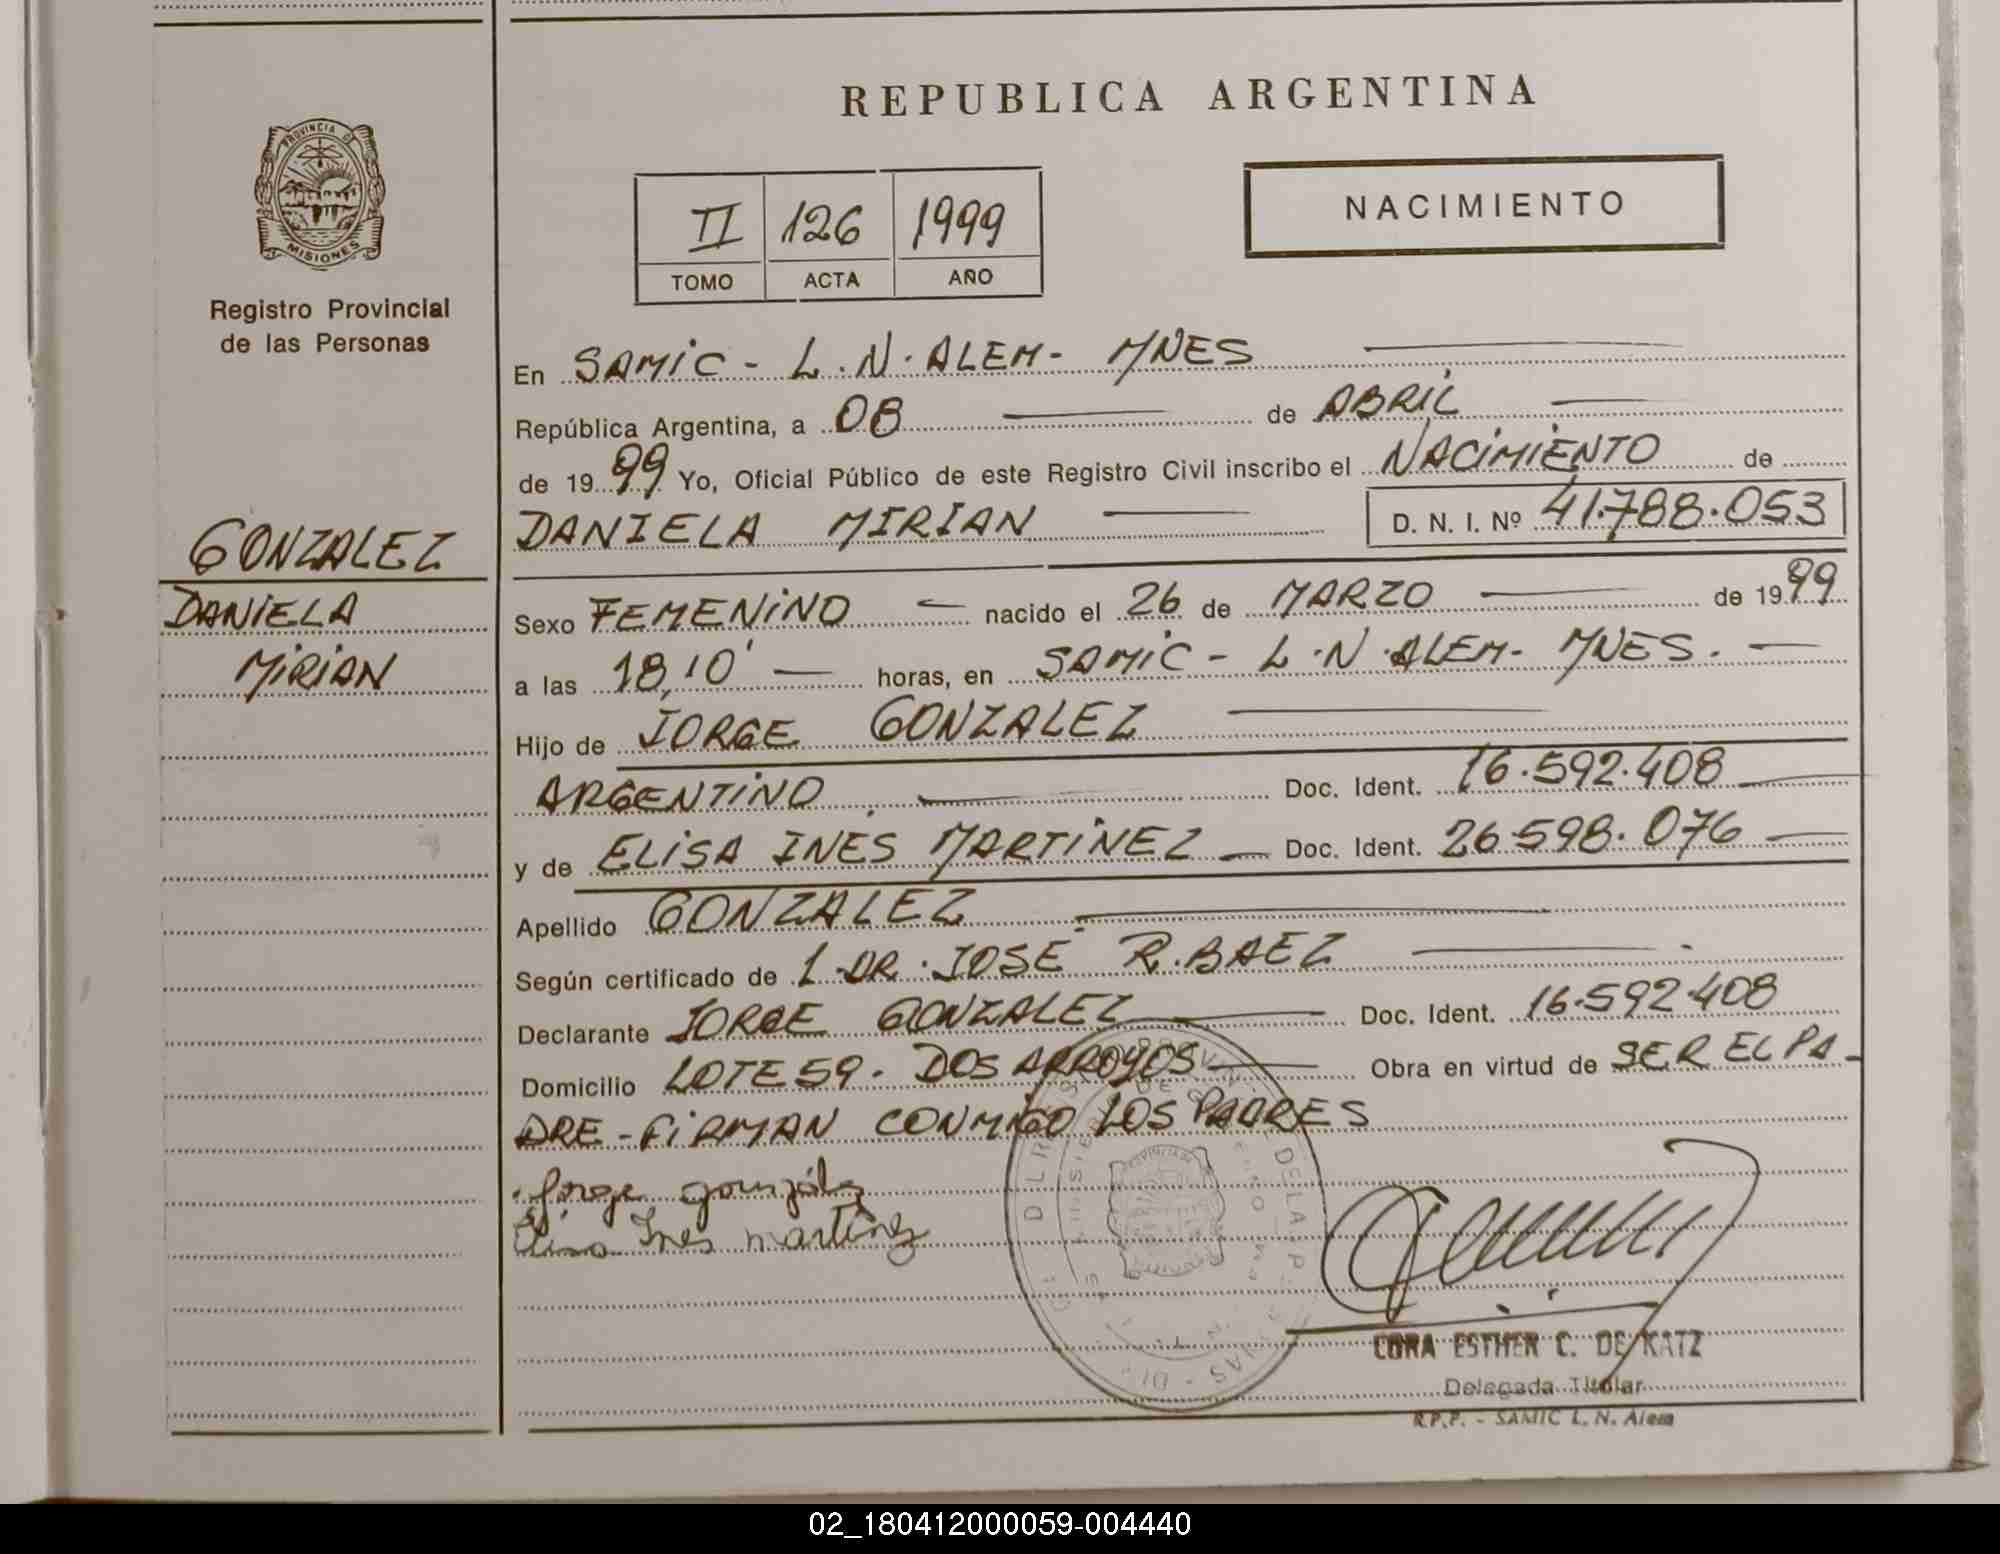 REPUBLICA ARGENTINA
PROVINCIA DE
MISIONES
Registro Provincial
de las Personas
II 126 1999
TOMO ACTA AÑO
NACIMIENTO
En SAMIC - L.N. ALEM - MNES
República Argentina, a 08 de ABRIL
de 1999 Yo, Oficial Público de este Registro Civil inscribo el NACIMIENTO de
DANIELA MIRIAN D. N. I. Nº 41.788.053
GONZALEZ
DANIELA
MIRIAN
Sexo FEMENINO nacido el 26 de MARZO de 1999
a las 18,10' horas, en SAMIC - L.N. ALEM - MNES.
Hijo de JORGE GONZALEZ
ARGENTINO Doc. Ident. 16.592.408
y de ELISA INÉS MARTINEZ Doc. Ident. 26.598.076
Apellido GONZALEZ
Según certificado de 1. DR. JOSÉ R. BAEZ
Declarante JORGE GONZALEZ Doc. Ident. 16.592.408
Domicilio LOTE 59. DOS ARROYOS Obra en virtud de SER EL PA-
DRE - FIRMAN CONMIGO LOS PADRES
Jorge gonzález
Elisa Ines martinez
CORA ESTHER C. DE KATZ
Delegada Titular
R.P.P. - SAMIC L. N. Alem
02_180412000059-004440